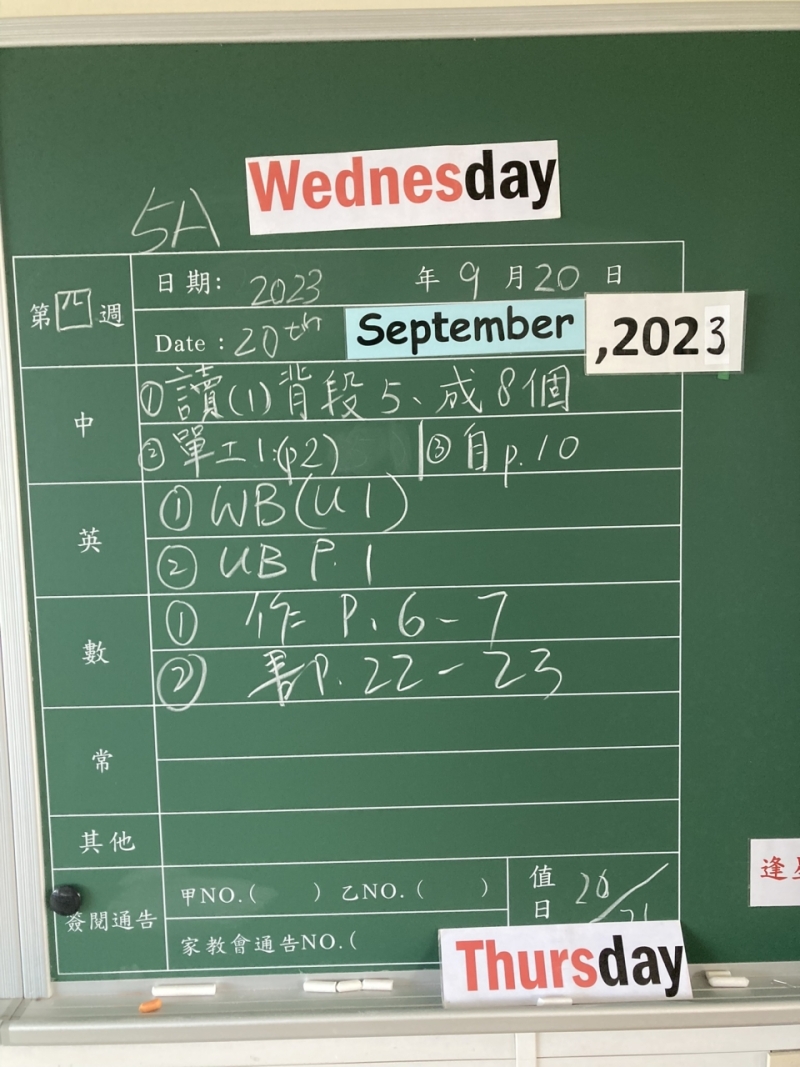 Wednesday
5A
第四週
日期: 2023 年 9 月 20 日
Date : 20th September ,2023
中
① 讀(1) 背段5、成8個
② 單工1:(p2) ③ 自p.10
英
① WB(U1)
② UB P.1
數
① 作 P.6-7
② P.22-23
常
其他
簽閱通告
甲NO.( ) 乙NO.( )
家教會通告NO.(
值日 20/21
Thursday
逢